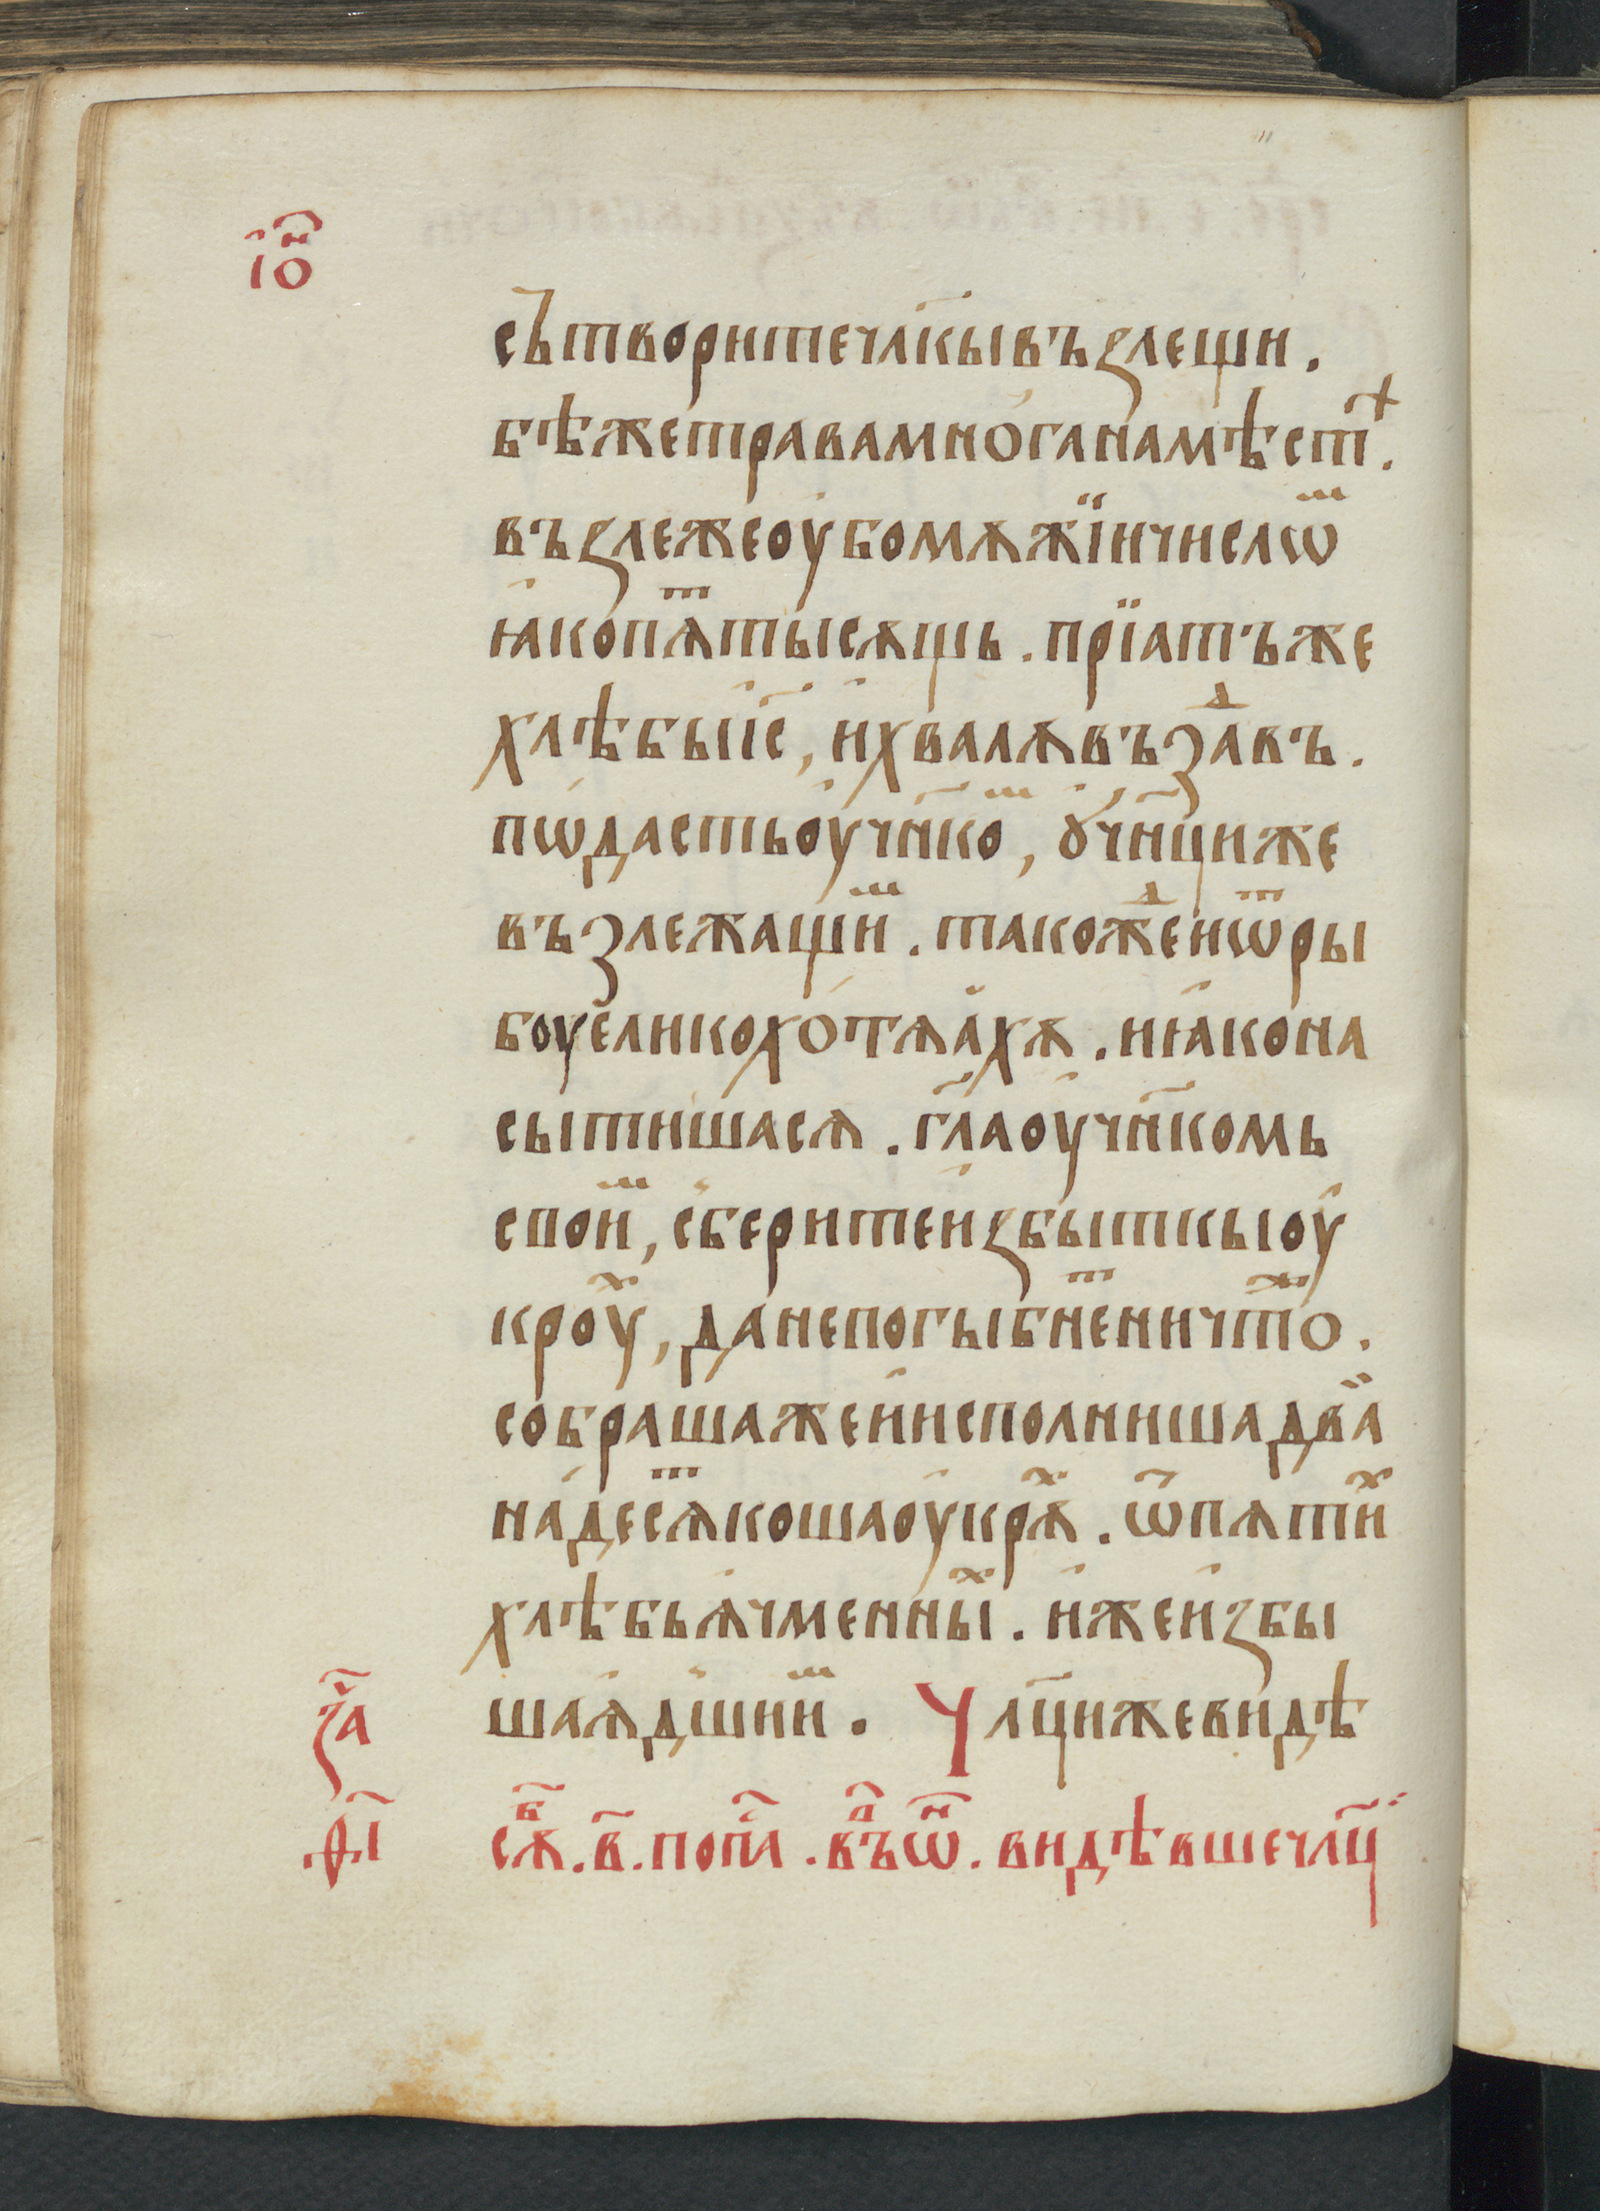 іѡ҃н
сътворитечл҃кывъꙁлещи.
бѣжетравамно́ганамѣстⷯ.
въꙁлежеоубомѫжїичислѡⷨ
ꙗ҆копѧⷮтысѧщь. прїатъже
хлѣбыі҆с҃, и҆хвалѫвъзⷣавъ.
пѡдастьоу҆чн҃коⷨ, ꙋ҆чн҃циже
възлежащиⷨ. такоⷤдеи҆ѿры
боуе҆ликохотѧа҆хѫ. иꙗ҆кона
сытишасѧ. гл҃аоу҆чн҃комь
своиⷨ, сберитеи҆ꙁбыткыоу҆
кроуⷯ, данепогыбнеⷮничтоⷤ.
собрашажеи҆исполнишадва̀
на́десѧⷮкошаоу҆крѫⷯ. ѿпѧтиⷯ
хлѣбьꙗ҆чменныⷯ. и҆жеи҆ꙁбы
шаꙗ҆дшиⷨ. Чл҃цижевидѣ
за҃
ф҃і
сѫⷠ. в҃. поп҃л. вⷫъѡⷩ. видѣвшечл҃ц